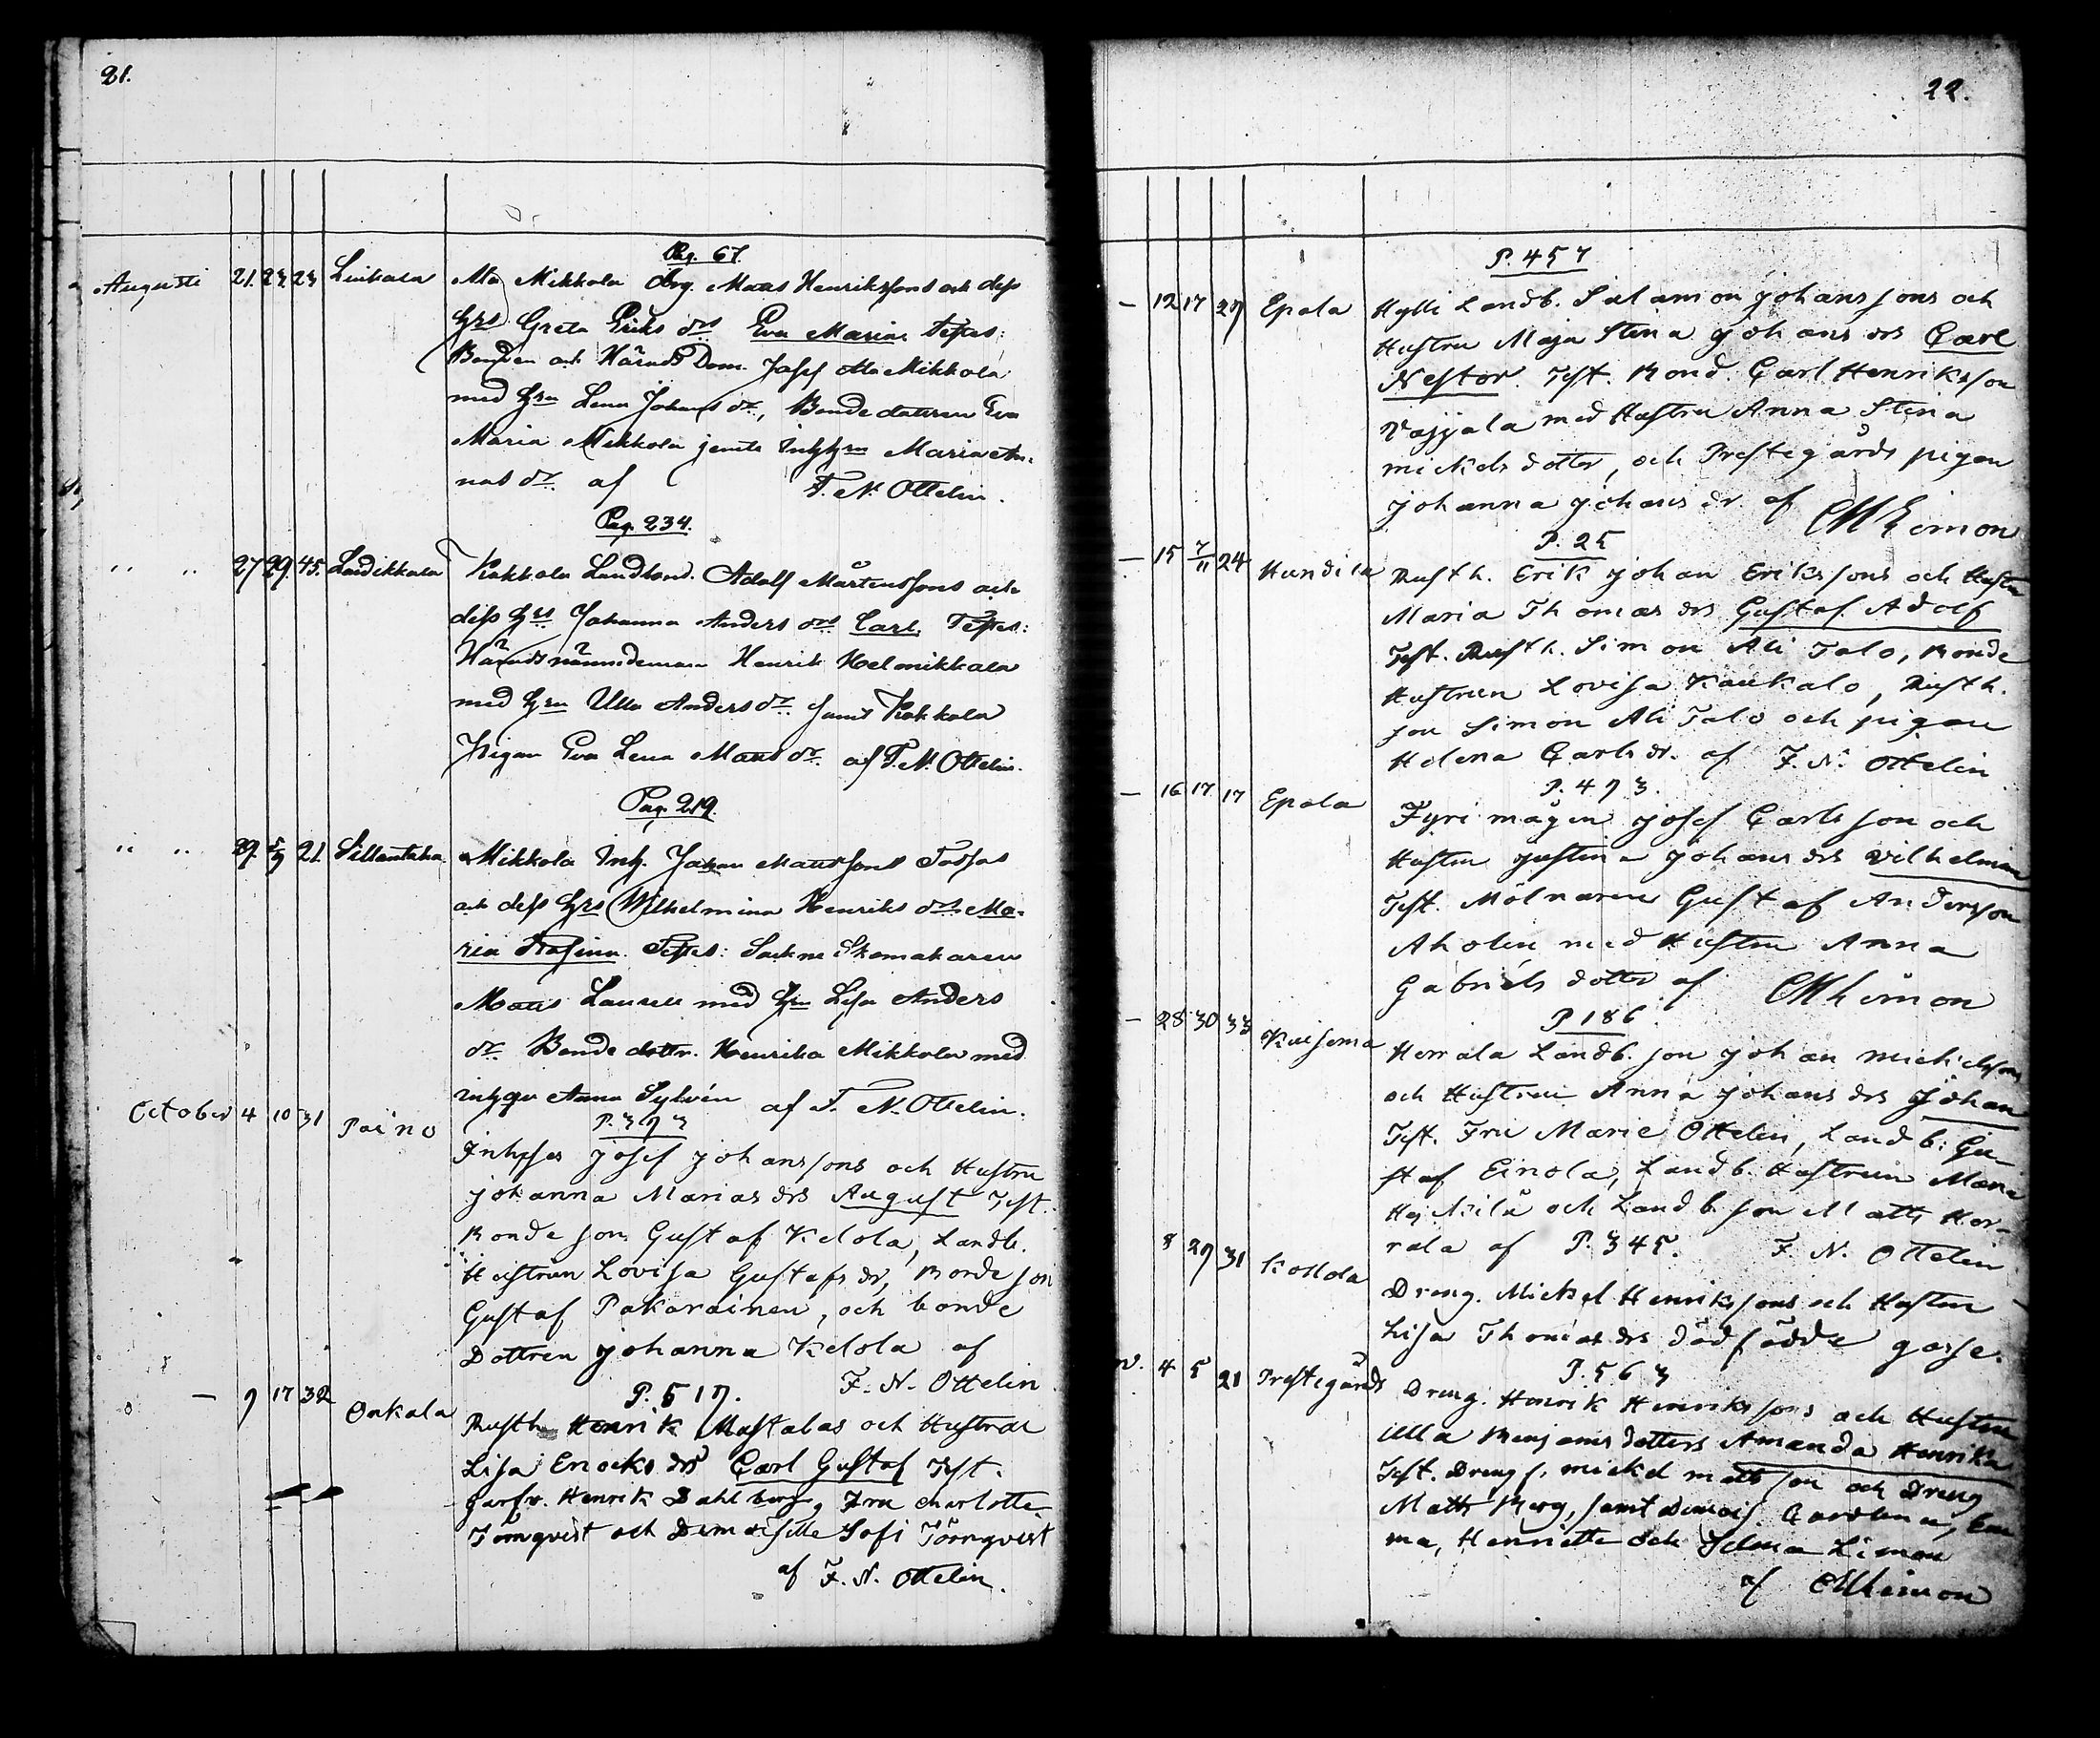 21.
Pag. 67.
Augusti 21. 23. 23 Liukala Ala Mikkola drg. Matts Henrikssons och dess
Hrs Greta Eriks drs Eva Maria. Testes:
Bonden och Härads Dom. Josef Ala Mikkola
med Hru Lena Johans dr, Bonde dottren Eva
Maria Mikkola jemte Inhhru Maria An-
nas dr. af F. N. Ottelin.
Pag. 234.
" " 27 29. 45. Laidikkala Kokkola Landbond. Adolf Mårtenssons och
dess Hrs Johanna Anders drs Carl. Testes:
Häradsnämndeman Henrik Helmikkala
med Hru Ulla Anders dr. samt Kokkola
Pigan Eva Lena Matts dr. af F. N. Ottelin.
Pag. 219.
" " 29. 5/9 21. Sillantaka Mikkola Inh. Johan Mattssons
och dess Hrs Wilhelmina Henriks drs Ma-
ria Rosina. Testes: Sockne Skomakaren
Matts Laurell med Hru Lisa Anders
dr. Bonde dottr. Henrika Mikkola med
inhqv Anna Sylvén af F. N. Ottelin.
P. 393
October 4 10 31 Paino Inhyses Josef Johanssons och Hustru
Johanna Marias drs August Test.
Bonde son Gustaf Kelola, Landb.
Hustrun Lovisa Gustafs dr, Bonde son
Gustaf Pakarainen, och bonde
Dottren Johanna Kelola af
F. N. Ottelin
P. 517.
— 9 17 32 Onkala Rusth Henrik Mastalas och Hustrus
Lisa Enocks drs Carl Gustaf Test.
Garfv. Henrik Dahlberg, Fru Charlotte
Törnqvist och Demoiselle Sofi Törnqvist
af F. N. Ottelin.
22.
P. 457
— 12 17 29 Epala Hylli Landb. Salamon Johanssons och
Hustru Maja Stina Johans drs Carl
Nestor. Test. Bond. Carl Henriksson
Vojjala med Hustru Anna Stina
Mickels dotter, och Prestegårds pigan
Johanna Johans dr. af CM Limon
P. 25
— 15 7/11 24 Hundila Rusth. Erik Johan Erikssons och Hustru
Maria Thomas drs Gustaf Adolf
Test. Rusth. Simon Ali Talo, Bonde
Hustrun Lovisa Kaukalo, Rusth.
son Simon Ali Talo och pigan
Helena Carls dr. af F. N. Ottelin
P. 493.
— 16 17 17 Epala Fyri mågen Josef Carlsson och
Hustru Justina Johans drs Vilhelmina
Test. Mölnaren Gustaf Andersson
Aholin med Hustru Anna
Gabriels dotter af CM Limon
P 186.
— 28 30 33 Kuisema Horrala Landb. son Johan Michelssons
och Hustrun Anna Johans drs Johan
Test. Fru Marie Ottelin, Landb. Gu-
staf Einola, Landb. Hustrun Maria
Heikkilä och Landb. son Matts Hor-
rala af F. N. Ottelin
P. 345.
8 29 31 Kollola Dreng. Mickel Henrikssons och Hustru
Lisa Thomas drs dödfödde gosse.
P. 563
v. 4 5 21 Prestegårds Dreng. Henrik Henrikssons och Hustru
Ulla Benjamis dotters Amanda Henrika
Test. Dreng s. Mickel Mattsson och Dreng
Matts Berg, samt Demois. Carolina, Em
ma, Henriette och Selma Limon
af CM Limon